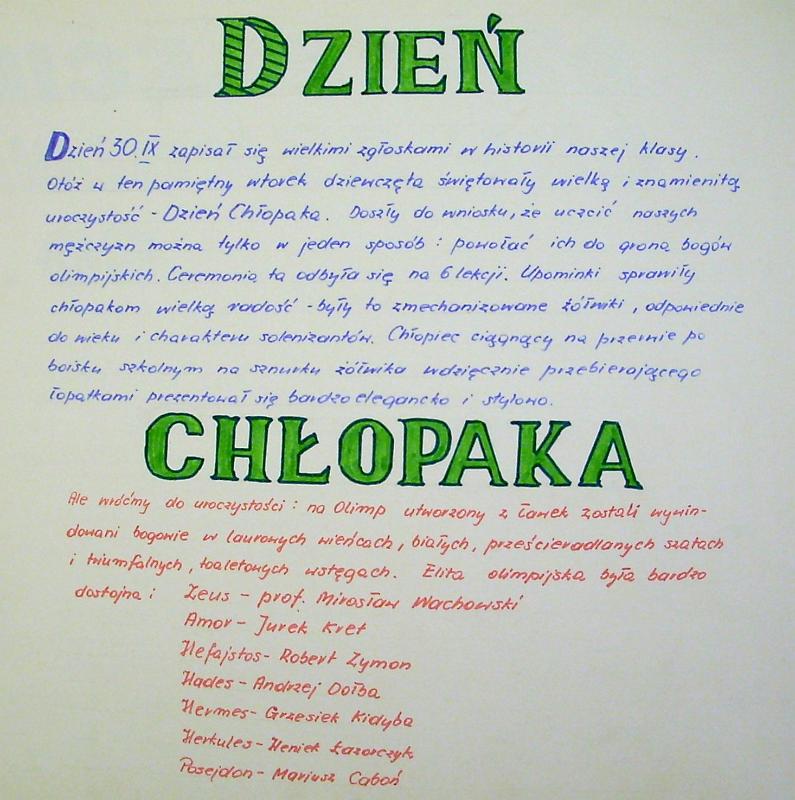 DZIEŃ
Dzień 30.IX zapisał się wielkimi zgłoskami w historii naszej klasy.
Otóż w ten pamiętny wtorek dziewczęta świętowały wielką i znamienitą
uroczystość - Dzień Chłopaka. Doszły do wniosku, że uczcić naszych
mężczyzn można tylko w jeden sposób: powołać ich do grona bogów
olimpijskich. Ceremonia ta odbyła się na 6 lekcji. Upominki sprawiły
chłopakom wielką radość - były to zmechanizowane żółwiki, odpowiednie
do wieku i charakteru solenizantów. Chłopiec ciągnący na przerwie po
boisku szkolnym na sznurku żółwika wdzięcznie przebierającego
łopatkami prezentował się bardzo elegancko i stylowo.
CHŁOPAKA
Ale wróćmy do uroczystości: na Olimp utworzony z ławek zostali wywin-
dowani bogowie w laurowych wieńcach, białych, prześcieradlanych szatach
i triumfalnych, toaletowych wstęgach. Elita olimpijska była bardzo
dostojna: Zeus - prof. Mirosław Wachowski
Amor - Jurek Kret
Hefajstos - Robert Zymon
Hades - Andrzej Dołba
Hermes - Grzesiek Kidyba
Herkules - Heniek Łazorczyk
Posejdon - Mariusz Caboń